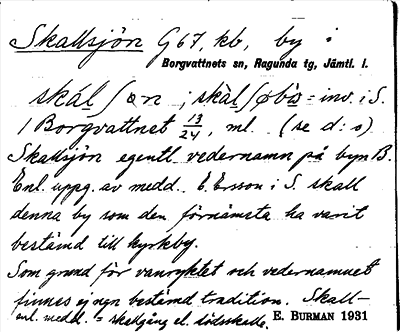 Skallsjön G67, kb, by i
Borgvattnets sn, Ragunda tg, Jämtl. l.
skál∫ǫn ; skàl∫ǫbs = inv. i S.
/ Borgvattnet 13/24, ml. (se d:o)
Skallsjön egentl. vedernamn på byn B.
Enl. uppg. av medd. E. Ersson i S. skall
denna by som den förnämsta ha varit
bestämd till kyrkby.
Som grund för vanryktet och vedernamnet
finnes ej ngn bestämd tradition. Skall-
enl. medd. = skallgång el. lodsskalle.
E. BURMAN 1931